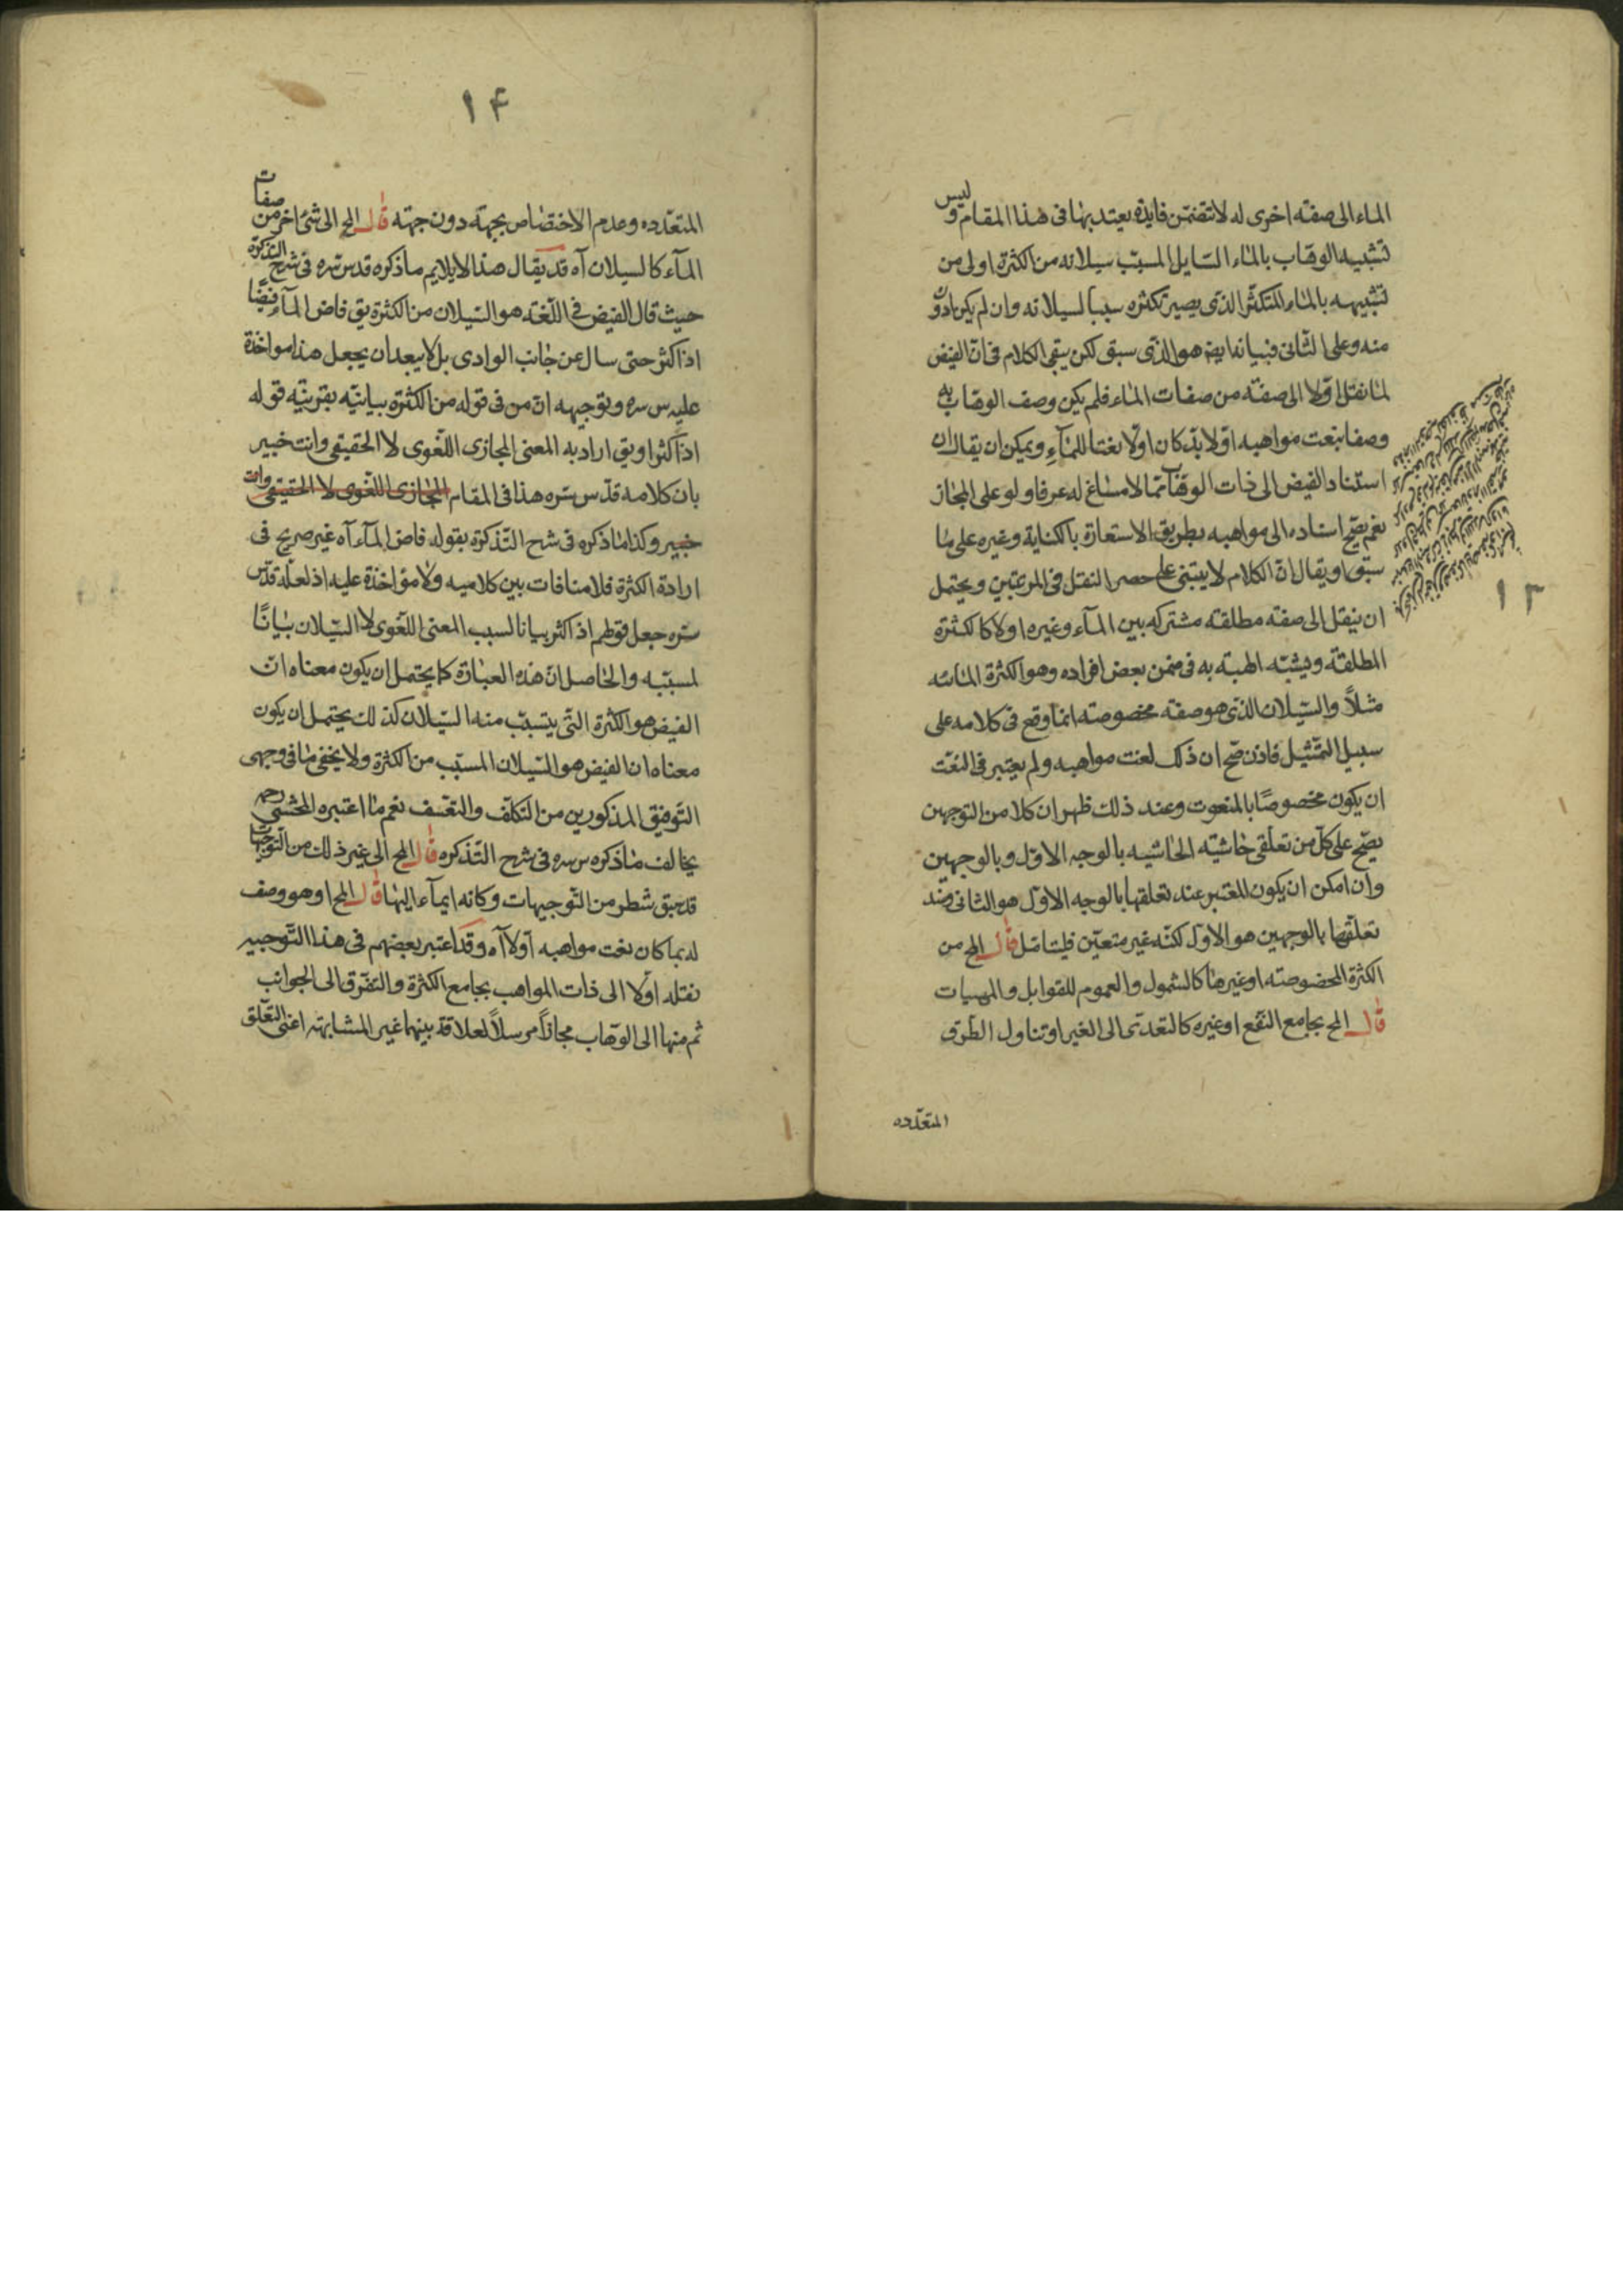 الماء الى صفة اخرى له لا تتضمن فايدة يعتد بها فى هذا المقام و ليس
تشبيه الوهاب بالماء السايل المسبب سيلانه من الكثرة اولى من
تشبيهه بالماء المتكثر الذى يصير تكثره سببا لسيلانه وان لم يكن ادون
منه وعلى الثانى فبيانه ايضا هو الذى سبق لكن يبقى الكلام فى ان الفيض
لما نقل اولا الى صفة من صفات الماء فلم يكن وصف الوهاب به
وصفا بنعت مواهبه اولا بل كان اولا نعتا للمآء ويمكن ان يقال ان
استناد الفيض الى ذات الوهاب مما لا مساغ له عرفا ولو على المجاز
نعم يصح اسناده الى مواهبه بطريق الاستعارة بالكناية وغيره على ما
سبق او يقال ان الكلام لا يبتنى على حصر النقل فى المرتبتين ويحتمل
ان ينقل الى صفة مطلقة مشتركه بين المآء وغيره اولا كالكثرة
المطلقة ويشبه الهبة به فى ضمن بعض افراده وهو الكثرة المائيه
مثلاً والسيلان الذى هو صفة مخصوصة انما وقع فى كلامه على
سبيل التمثيل فاذن صح ان ذلك لنعت مواهبه ولم يعتبر فى النعت
ان يكون مخصوصًا بالمنعوت وعند ذلك ظهر ان كلا من التوجهين
يصح على كل من تعلقى حاشية الحاشيه بالوجه الاول وبالوجهين
وان امكن ان يكون المعتبر عند تعلقها بالوجه الاول هو الثانى وعند
تعلقها بالوجهين هو الاول لكنه غير متعين فليتامل قال المح من
الكثرة المخصوصة او غيرها كالشمول والعموم للقوابل والمهيات
قال المح بجامع النفع او غيره كالتعدى الى الغير او تناول الطرق
المتعدده
١٣
١۴
المتعدده وعدم الاختصاص بجهة دون جهة قال المح الى شئ اخر من صفات
المآء كالسيلان آه قد يقال هذا لا يلايم ما ذكره قدس سره فى شرح التذكرة
حيث قال الفيض فى اللغة هو السيلان من الكثرة يق فاض المآء فيضًا
اذا كثر حتى سال عن جانب الوادى بل لا يبعد ان يجعل هذا مواخذة
عليه س سره وتوجيهه ان من فى قوله من الكثرة بيانية بقرينة قوله
اذا كثر او يق اراد به المعنى المجازى اللغوى لا الحقيقى وانت خبير
بان كلامه قدس سره هذا فى المقام المجازى اللغوى لا الحقيقى وانت
خبير وكذا ما ذكره فى شرح التذكرة بقوله فاض المآء آه غير صريح فى
ارادة الكثرة فلا منافات بين كلاميه ولا مؤاخذة عليه اذ لعله قدس
سره جعل قولهم اذا كثر بيانا لسبب المعنى اللغوى لا السيلان بيانًا
لمسببه والحاصل ان هذه العبارة كما يحتمل ان يكون معناه ان
الفيض هو الكثرة التى يتسبب منه السيلان كذلك يحتمل ان يكون
معناه ان الفيض هو السيلان المسبب من الكثرة ولا يخفى ما فى وجهى
التوفيق المذكورين من التكلف والتعسف نعم ما اعتبره المحشى رحمه
يخالف ما ذكره س سره فى شرح التذكره قال المح الى غير ذلك من التوجيهات
قد سبق شطر من التوجيهات وكانه ايمآء اليها قال المح او هو وصف
له بما كان نعت مواهبه اولا آه وقد اعتبر بعضهم فى هذا التوجيه
نقله اولا الى ذات المواهب بجامع الكثرة والتفرق الى الجوانب
ثم منها الى الوهاب مجازاً مرسلاً لعلاقة بينهما غير المشابهة اعنى التعلق